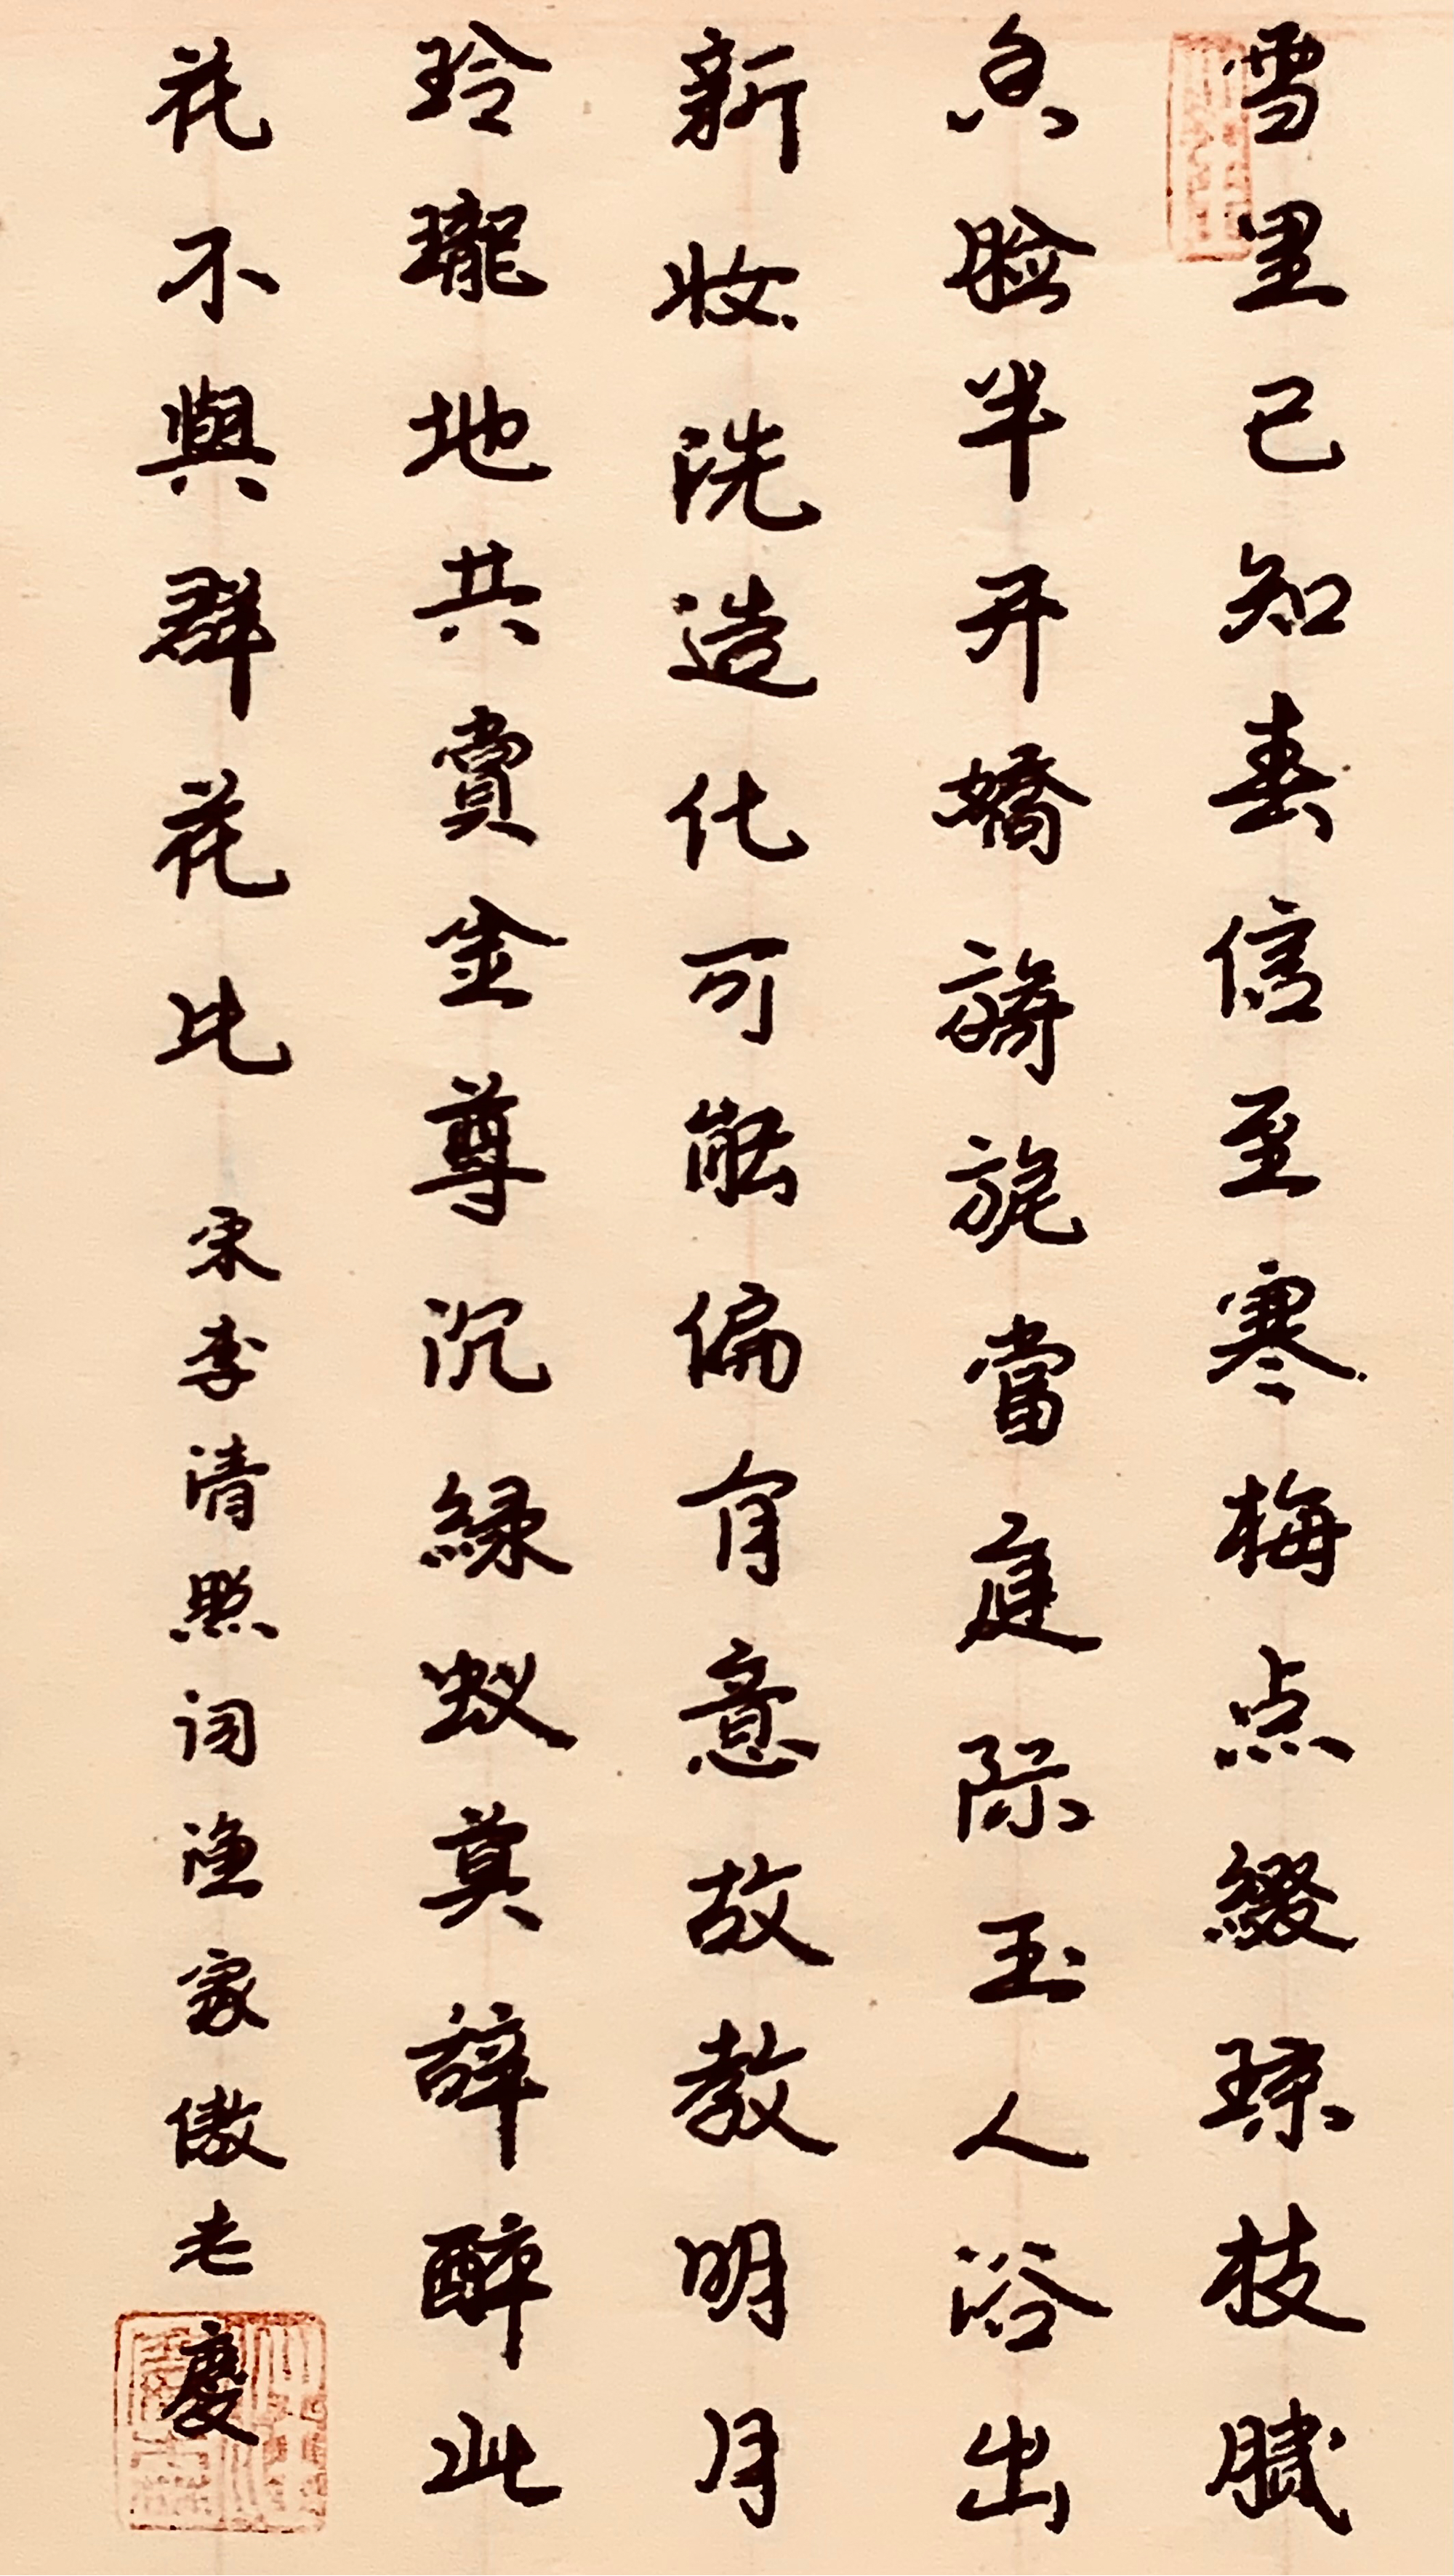 雪里已知春信至寒梅点綴琼枝腻
香脸半开嬌旖旎當庭际玉人浴出
新妝洗造化可能偏有意故教明月
玲瓏地共賞金尊沉緑蚁莫辞醉此
花不與群花比 宋李清照词渔家傲老慶